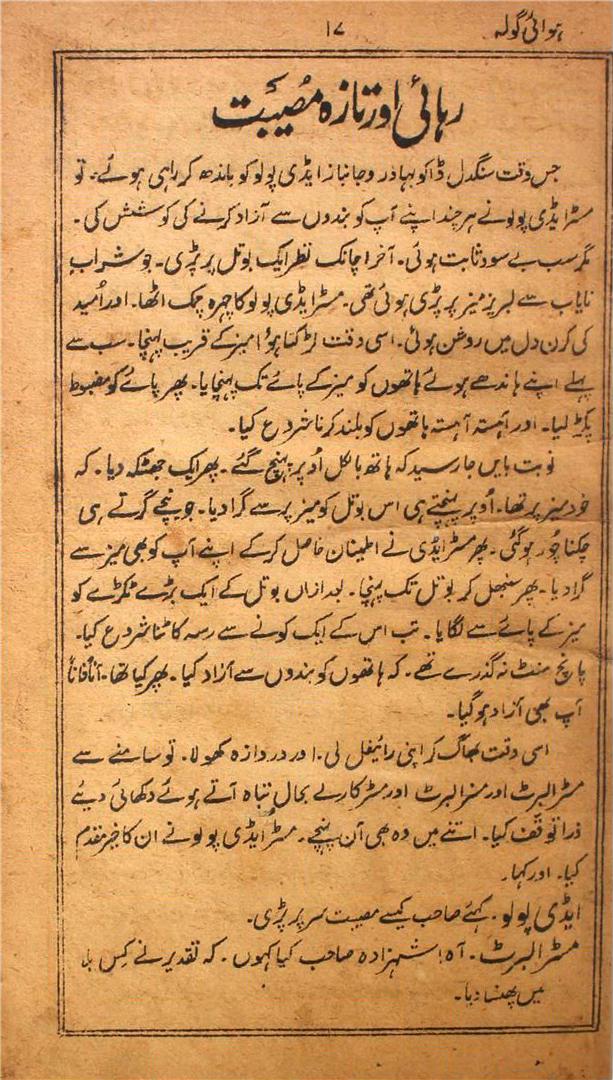 ہوائی گولہ ۱۷
رہائی اور تازہ مصیبت
جس وقت سنگدل ڈاکو بہادر و جانباز ایڈی پولو کو باندھ کر راہی ہوئے۔ تو
مسٹر ایڈی پولو نے ہر چند اپنے آپ کو بندوں سے آزاد کرنے کی کوشش کی۔
مگر سب بے سود ثابت ہوئی۔ آخر اچانک نظر ایک بوتل پر پڑی۔ جو شراب
نایاب سے لبریز میز پر پڑی ہوئی تھی۔ مسٹر ایڈی پولو کا چہرہ چمک اٹھا۔ اور اُمید
کی کرن دل میں روشن ہوئی۔ اسی وقت لڑکتا ہوا میز کے قریب پہنچا۔ سب سے
پہلے اپنے باندھے ہوئے ہاتھوں کو میز کے پائے تک پہنچایا۔ پھر پائے کو مضبوط
پکڑ لیا۔ اور آہستہ آہستہ ہاتھوں کو بلند کرنا شروع کیا۔
نوبت بایں جا رسید کہ ہاتھ بالکل اُوپر پہنچ گئے۔ پھر ایک جھٹکہ دیا۔ کہ
خود میز پر تھا۔ اُوپر پہنچتے ہی اس بوتل کو میز پر سے گرا دیا۔ جو نیچے گرتے ہی
چکنا چُور ہوگئی۔ پھر مسٹر ایڈی نے اطمینان حاصل کرکے اپنے آپ کو بھی میز سے
گرا دیا۔ پھر سنبھل کر بوتل تک پہنچا۔ بعد ازاں بوتل کے ایک بڑے ٹکڑے کو
میز کے پائے سے لگایا۔ تب اس کے ایک کونے سے رسہ کاٹنا شروع کیا۔
پانچ منٹ نہ گذرے تھے۔ کہ ہاتھوں کو بندوں سے آزاد کیا۔ پھر کیا تھا۔ آناً فاناً
آپ بھی آزاد ہوگیا۔
اسی وقت بھاگ کر اپنی رائیفل لی۔ اور دروازہ کھولا۔ تو سامنے سے
مسٹر البرٹ اور مسز البرٹ اور مسٹر کارلے بحال تباہ آتے ہوئے دکھائی دیئے
ذرا توقف کیا۔ اتنے میں وہ بھی آن پہنچے۔ مسٹر ایڈی پولو نے ان کا خیر مقدم
کیا۔ اور کہا۔
ایڈی پولو۔ کہئے صاحب کیسے مصیبت سر پر پڑی۔
مسٹر البرٹ۔ آہ! شہزادہ صاحب کیا کہوں۔ کہ تقدیر نے کس بلا
میں پھنسا دیا۔